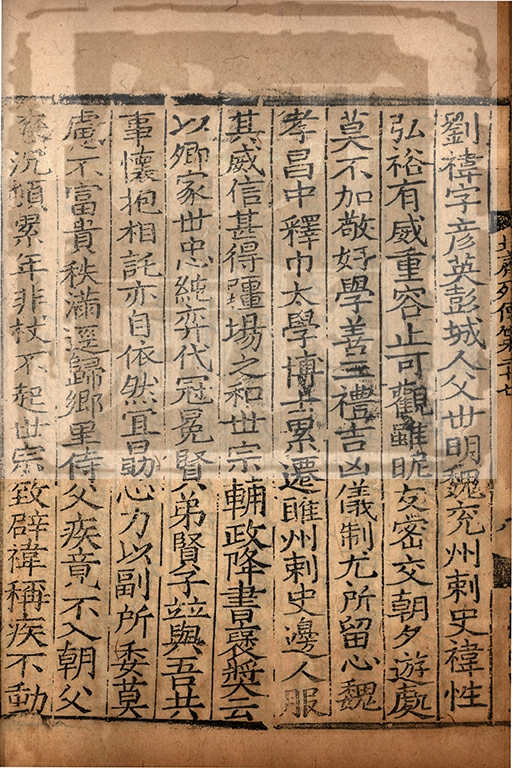 劉禕字彦英彭城人父世明魏兖州刺史禕性
弘裕有威重容止可觀雖昵友密交朝夕遊處
莫不加敬好學善三禮吉凶儀制尤所留心魏
孝昌中釋巾太學博士累遷睢州刺史邊人服
其威信甚得疆場之和世宗輔政降書褒奬云
以卿家世忠純弈代冠冕賢弟賢子竝與吾共
事懷抱相託亦自依然宜勗心力以副所委莫
慮不富貴秩滿逕歸鄉里侍父疾竟不入朝父
喪沉頓累年非杖不起世宗致辟禕稱疾不動
北齊列傳第二十七